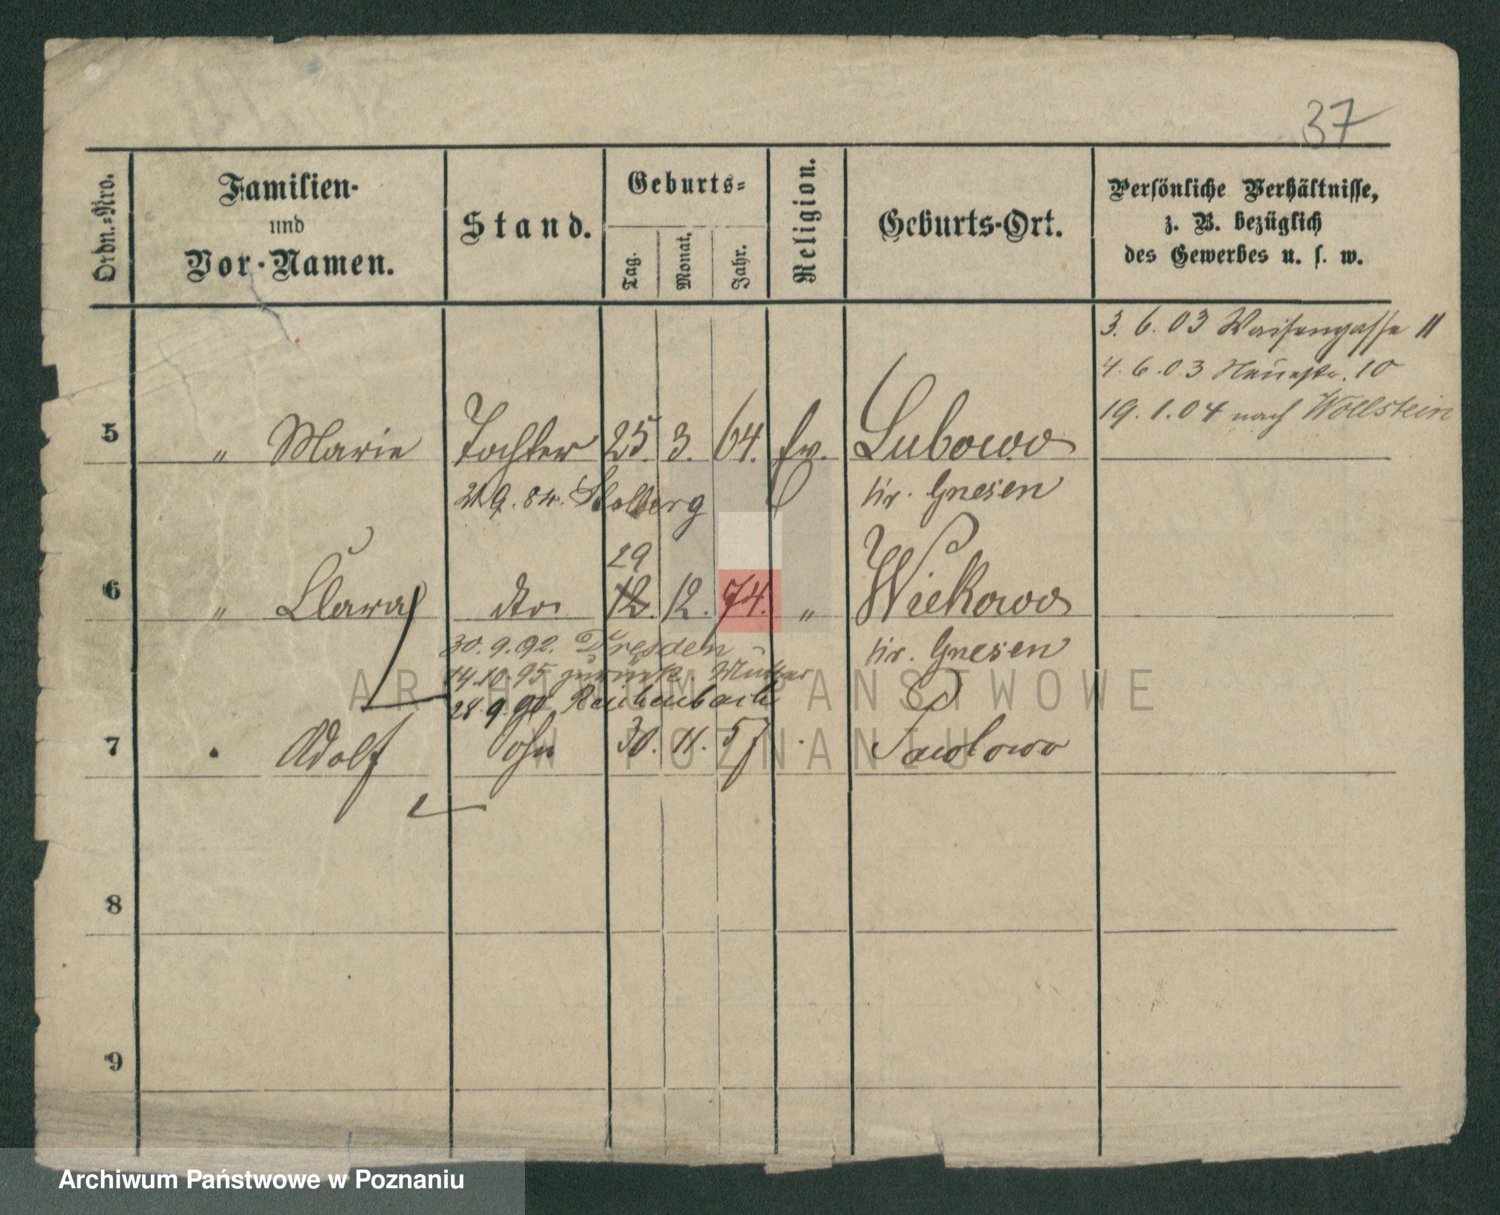 37
Ordn.-Nro.
Familien-
und
Vor-Namen.
Stand.
Geburts-
Tag.
Monat.
Jahr.
Religion.
Geburts-Ort.
Persönliche Verhältnisse,
z. B. bezüglich
des Gewerbes u. s. w.
3. 6. 03 Waisengasse 11
4. 6. 03 Neuestr. 10
19. 1. 04 nach Wollstein
5 " Marie Tochter 25. 3. 64. ev. Lubowo
9. 84. Stolberg Kr. Gnesen
29
6 " Clara dto 12. 12. 74. " Wiekowo
30. 9. 92. Dresden Kr. Gnesen
14.10.95 zurück Mutter
28.9.90 Reichenbach
7 Adolf Sohn 30. 11. 57
8
9
ARCHIWUM PAŃSTWOWE
W POZNANIU
Archiwum Państwowe w Poznaniu